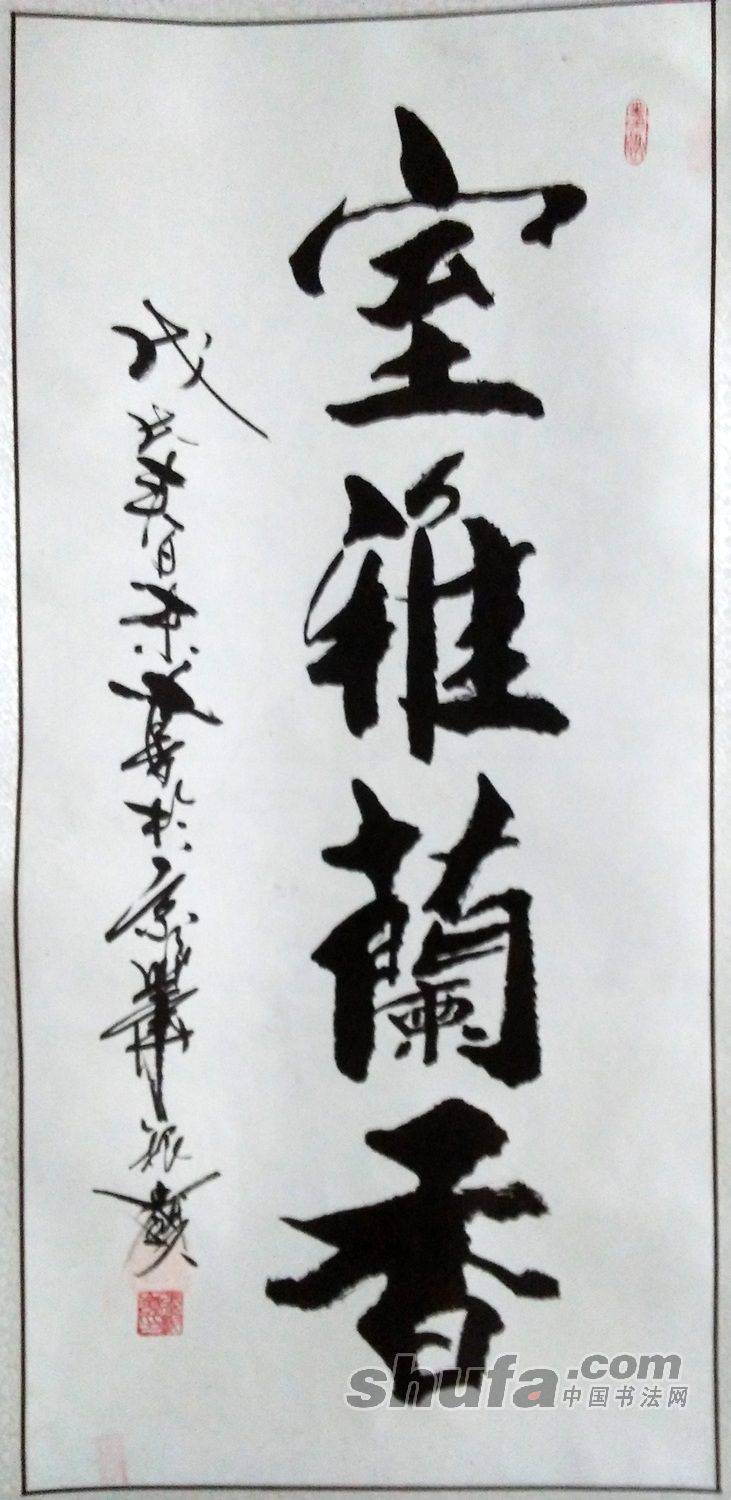 室雅蘭香
戊戌春日
於京華
shufa.com
中国书法网